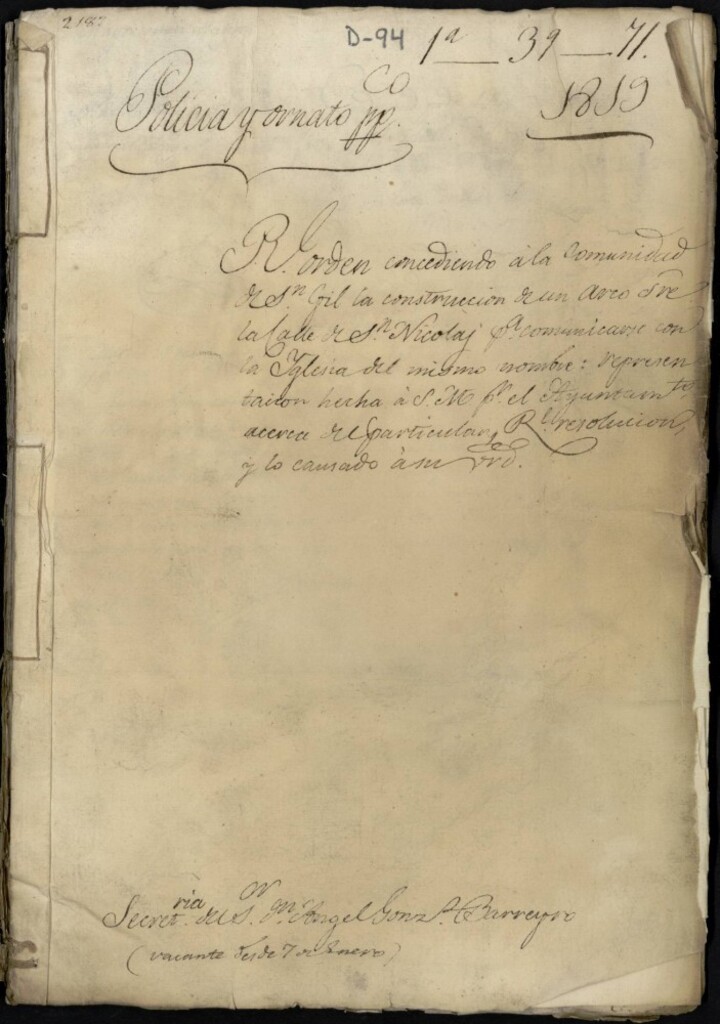 2187
D-94
1ª — 39 — 71.
Policia y ornato pp.co
1819
R.l orden concediendo à la Comunidad
de S.n Gil la construccion de un arco sre
la Calle de S.n Nicolas p.a comunicarse con
la Yglesia del mismo nombre: represen
tacion hecha à S.M. p.r el Ayuntam.to
acerca del particular; R.l resolucion,
y lo causado à su vrd.
Secret.ria del S.or D.n Angel Gonz.z Barreyro
(vacante desde 7 de Enero)